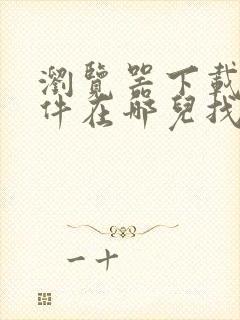 瀏覽器下載
件在哪兒找
一十